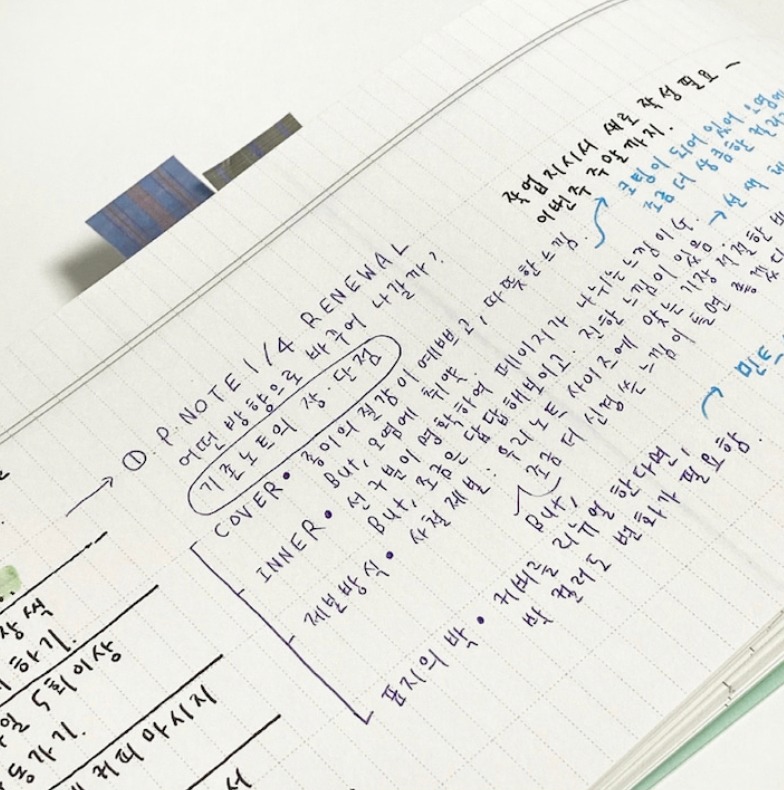 작업지시서 새로 작성 필요 –
이번주 주말까지.
코팅이 되어 있어 오염에
조금 더 상큼한 컬러
→ 선택
→ ① P.NOTE 1/4 RENEWAL
어떤 방향으로 바꾸어 나갈까?
기존노트의 장·단점
COVER • 종이의 질감이 예쁘고, 따뜻한 느낌.
But, 오염에 취약.
INNER • 선 구분이 명확하여 페이지가 나뉘는 느낌이 나.
But, 조금은 답답해보이고. 진한 느낌이 있음.
제본방식 • 사철제본. 우리노트 사이즈에 맞는 가장 적절한
But, 조금 더 신경쓰는 느낌이 들면
표지의 박 • 커버를 리뉴얼 한다면,
박 컬러도 변화가 필요함.
상색
하기.
5회이상
가기.
커피 마시지
서